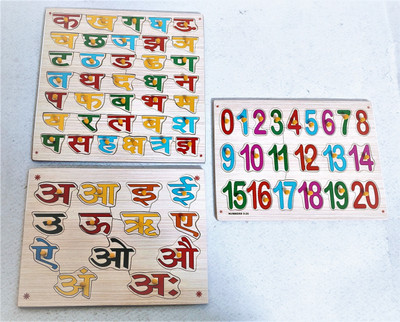 क ख ग घ ङ
च छ ज झ ञ
ट ठ ड ढ ण
त थ द ध न
प फ ब भ म
य र ल व श
ष स ह क्ष त्र ज्ञ
अ आ इ ई
उ ऊ ऋ ए
ऐ ओ औ
अं अः
0 1 2 3 4 5 6 7 8
9 10 11 12 13 14
15 16 17 18 19 20